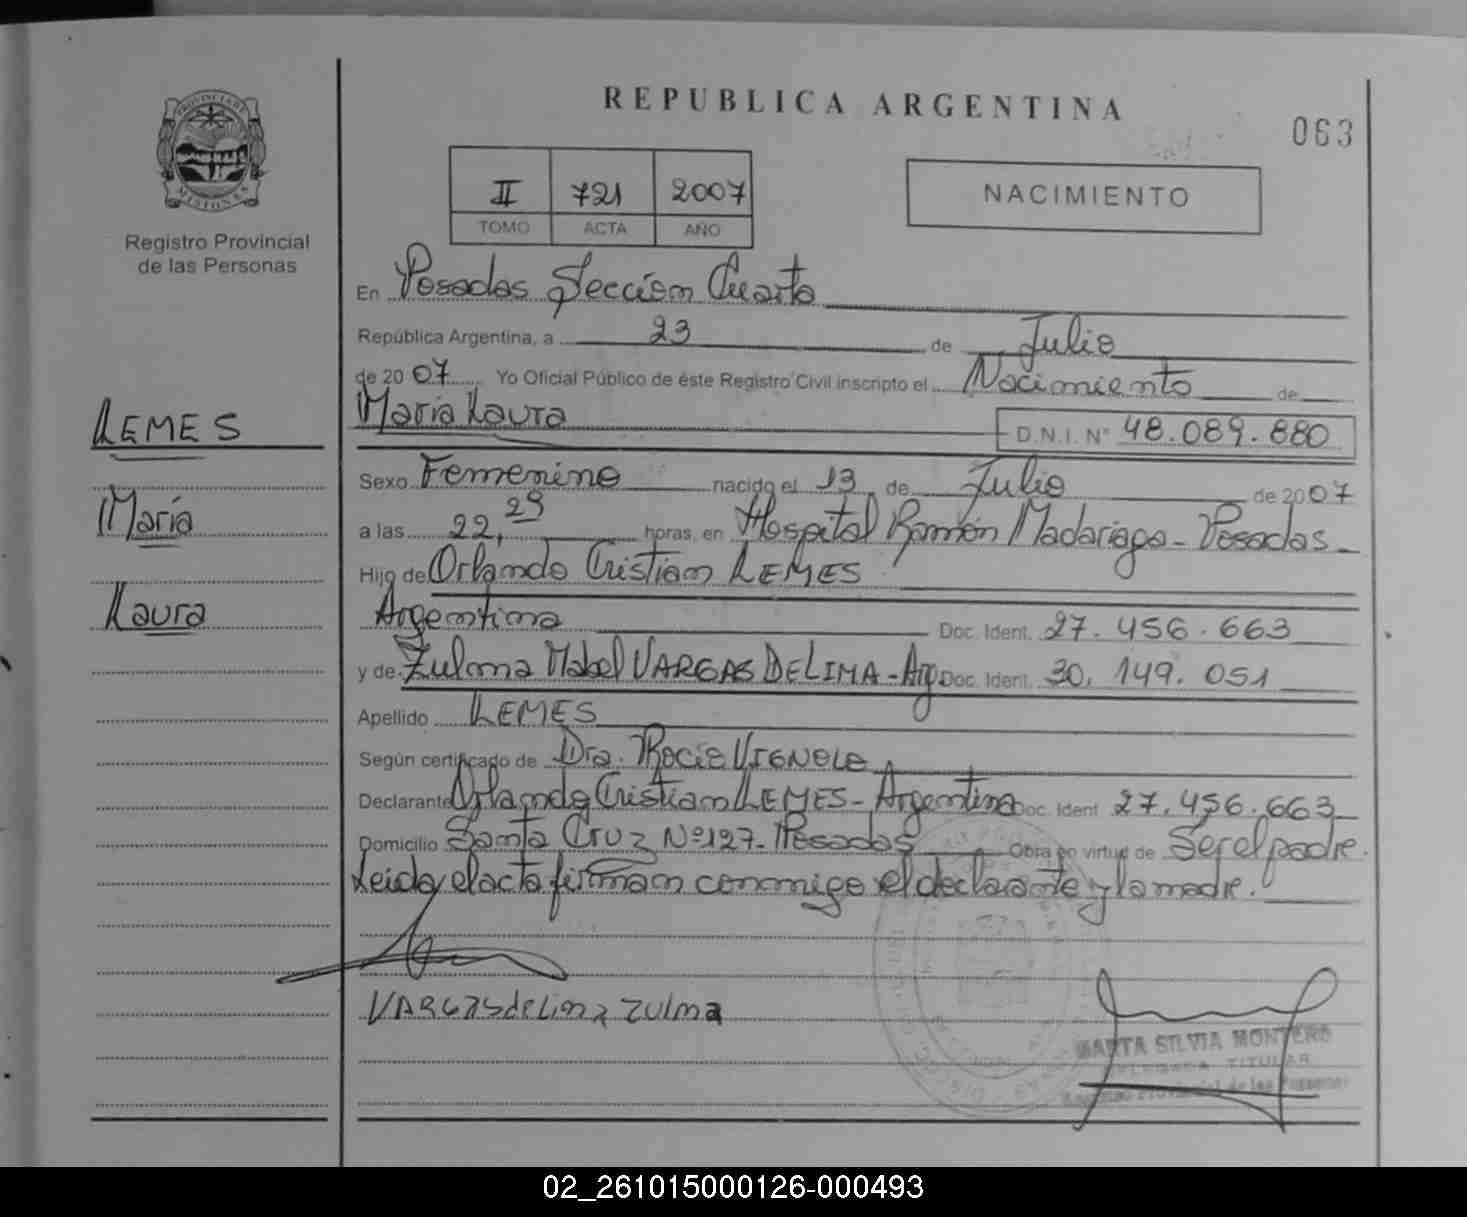 REPUBLICA ARGENTINA
063
II 721 2007
TOMO ACTA AÑO
NACIMIENTO
PROVINCIA DE MISIONES
Registro Provincial
de las Personas
LEMES
María
Laura
En Posadas Sección Cuarta
República Argentina, a 23 de Julio
de 2007 Yo Oficial Público de éste Registro Civil inscripto el Nacimiento de
María Laura D.N.I. Nº 48.089.880
Sexo Femenino nacido el 13 de Julio de 2007
a las 22,29 horas, en Hospital Ramón Madariaga - Posadas -
Hijo de Orlando Cristian LEMES
Argentina Doc. Ident. 27.456.663
y de Zulma Mabel VARGAS DE LIMA - Arg Doc. Ident. 30.149.051
Apellido LEMES
Según certificado de Dra. Rocío
Declarante Orlando Cristian LEMES - Argentina Doc. Ident 27.456.663
Domicilio Santa Cruz Nº 127 - Posadas Obra en virtud de Ser el padre.
Leida el acta firman conmigo el declarante y la madre.
VARGAS de Lima Zulma
MARTA SILVIA MONTERO
DELEGADA TITULAR
Registro Provincial de las Personas
02_261015000126-000493